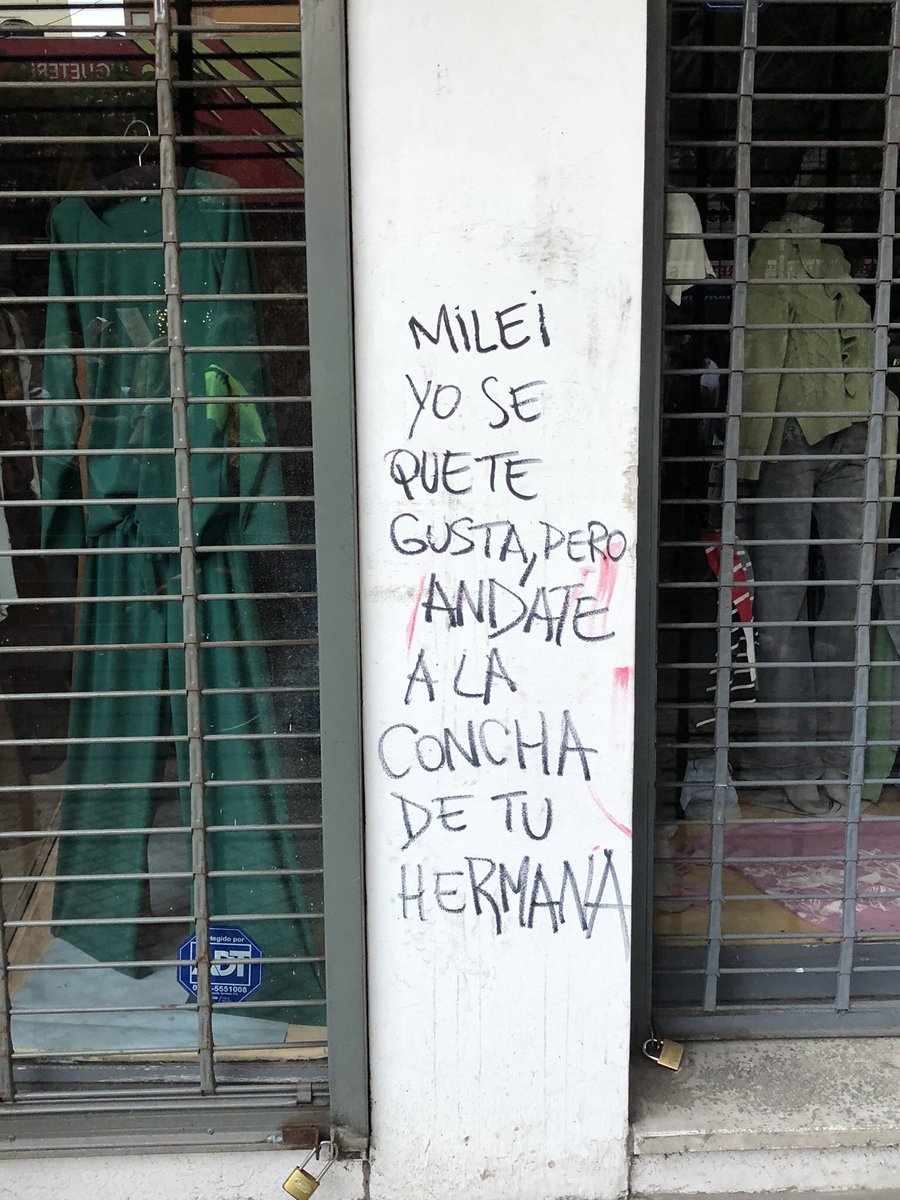 MiLEi
YO SE
QUE TE
GUSTA, PERO
ANDATE
A LA
CONCHA
DE TU
HERMANA
ADT
-5551008